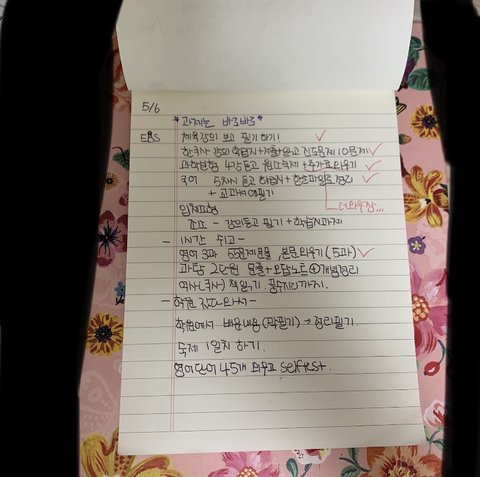 5/6
*과제는 바로바로*
EBS 체육강의 보고 필기하기!
한국사 강의 학습지+ 읽고 진도문제 10문제
과학탐험 4강듣고 필기 +추가로외우기
국어 5차시 듣고 학습지+한글파일로정리
+ 교과서에필기
더외우장...
입체조형
- 강의듣고 필기+학습지과제
- 1시간 쉬고 -
영어 3과 55문제 , 본문외우기(5과)
과탐 2단원 +오답노트 개념정리
역사(국사) 책읽기, 풍수지리까지.
- 학원 갔다와서 -
학원에서 배운내용(막필기) → 정리필기.
숙제 1일치 하기.
영어단어 45개 외우고 selftest.